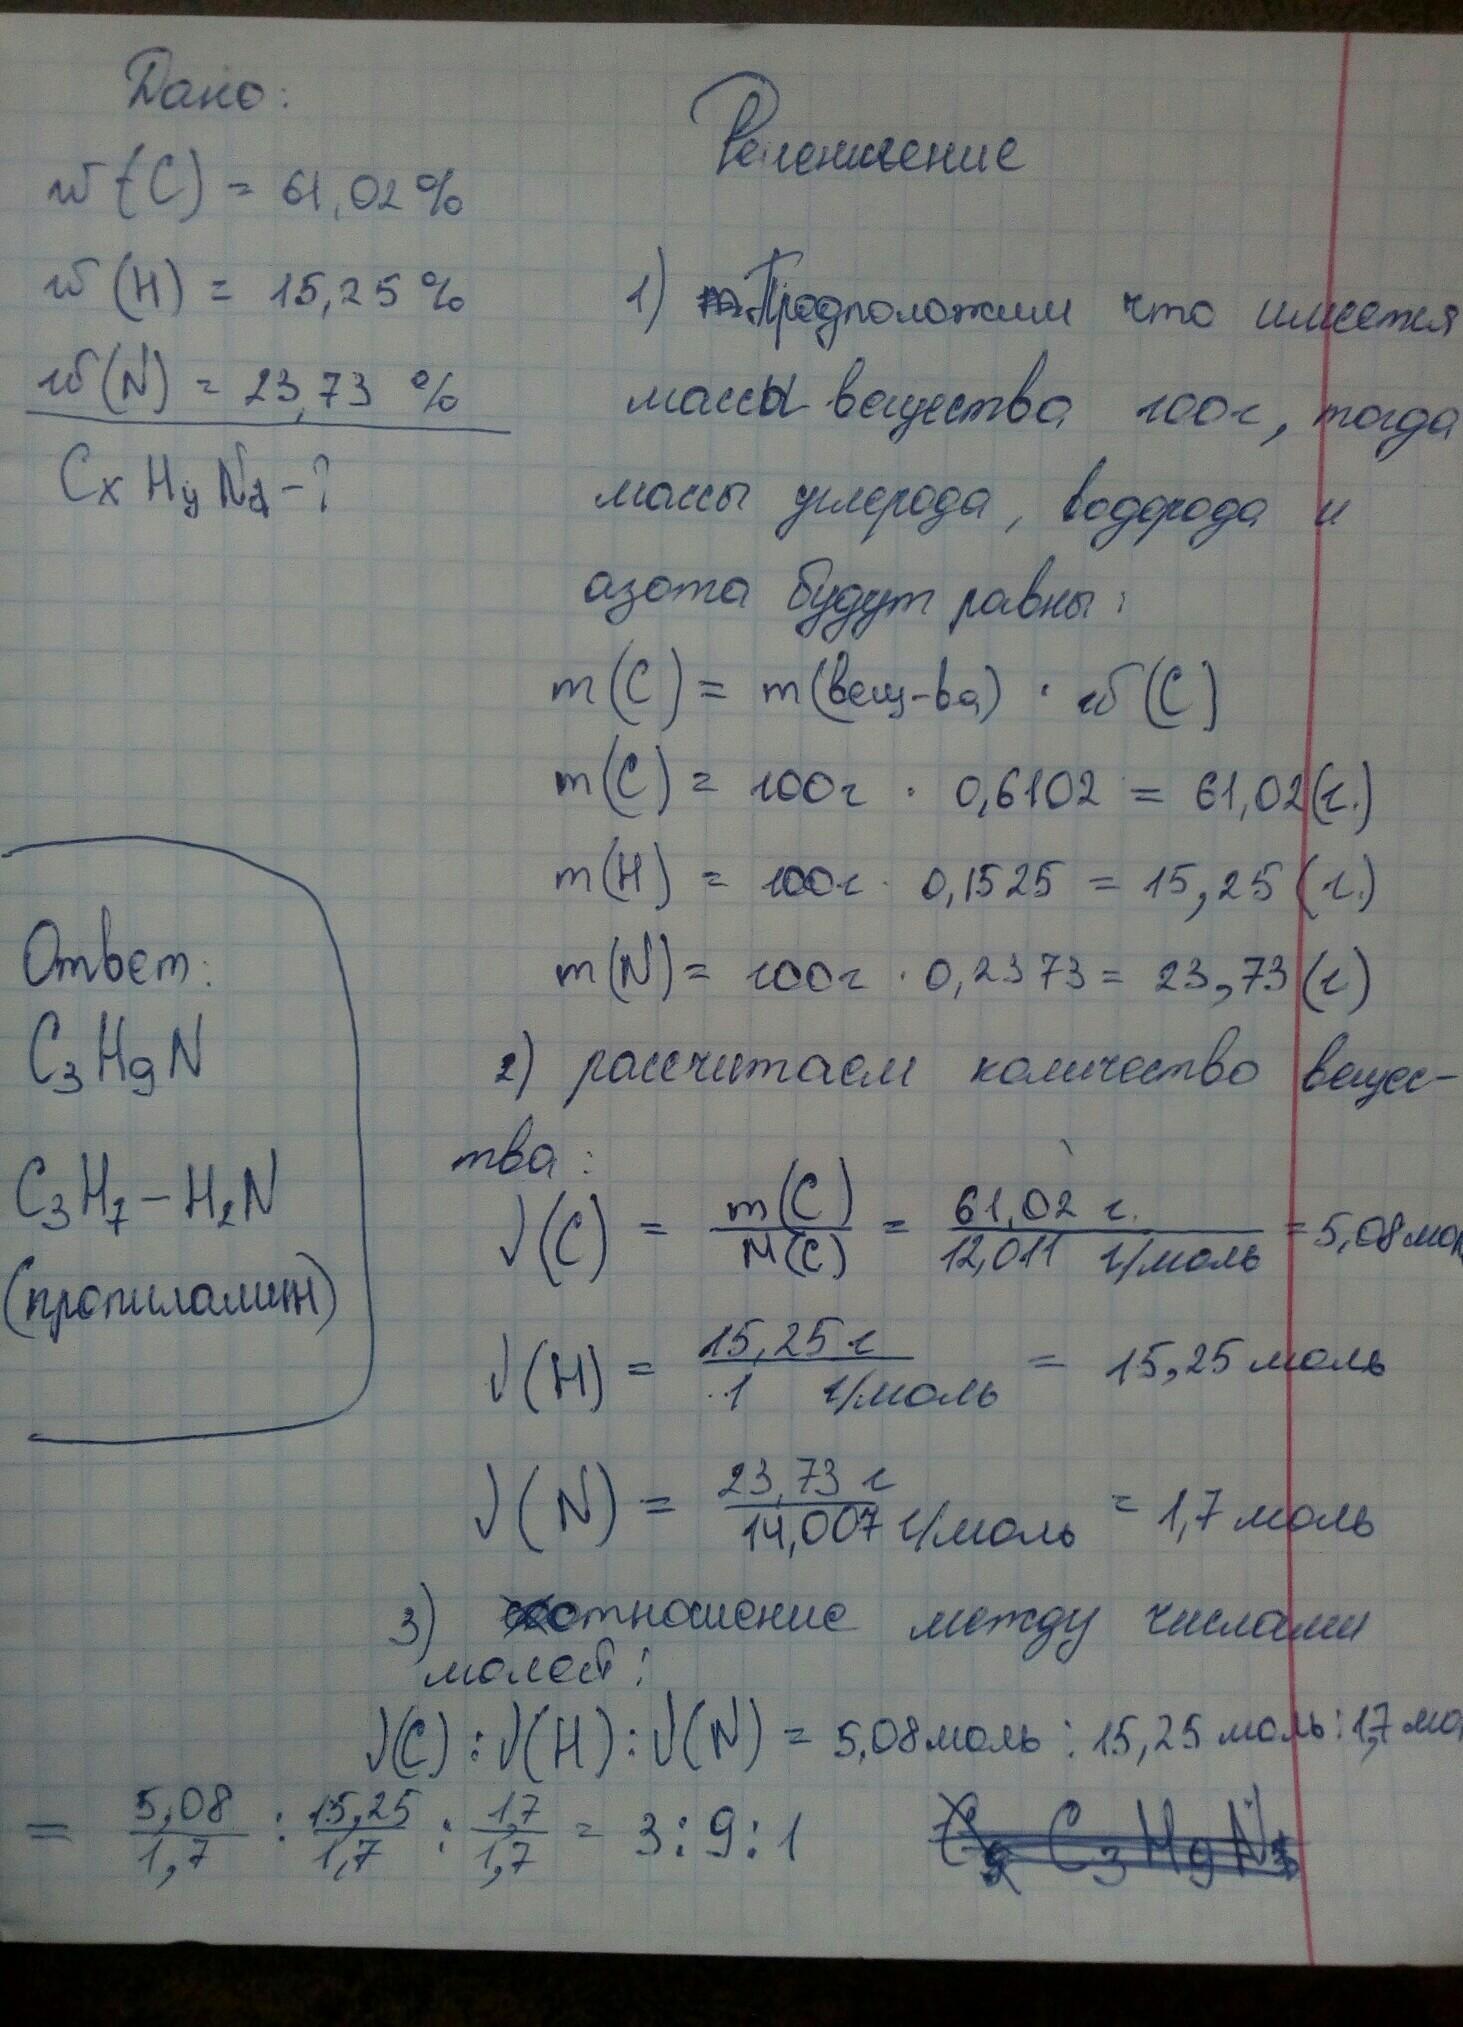 Дано:
w(C) = 61,02 %
w(H) = 15,25 %
w(N) = 23,73 %
CxHyNz - ?
Решение
1) Предположим что имеется
массы вещества 100г, тогда
массы углерода, водорода и
азота будут равны:
m(C) = m(вещ-ва) · w(C)
m(C) = 100г · 0,6102 = 61,02(г.)
m(H) = 100г · 0,1525 = 15,25(г.)
m(N) = 100г · 0,2373 = 23,73(г)
2) рассчитаем количество вещес-
тва:
ν(C) = m(C)/M(C) = 61,02 г./12,011 г/моль = 5,08 мол
ν(H) = 15,25 г/1 г/моль = 15,25 моль
ν(N) = 23,73 г/14,007 г/моль = 1,7 моль
3) отношение между числами
молей:
ν(C) : ν(H) : ν(N) = 5,08 моль : 15,25 моль : 1,7 мо
= 5,08/1,7 : 15,25/1,7 : 1,7/1,7 = 3:9:1
C3H9N1
Ответ:
C3H9N
C3H7 – H2N
(пропиламин)